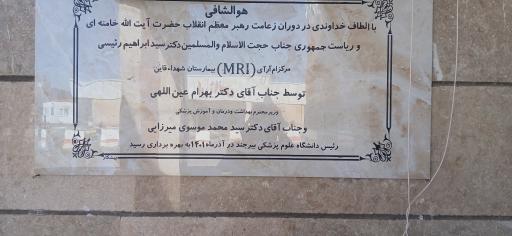 هوالشافی
با الطاف خداوندی در دوران زعامت رهبر معظم انقلاب حضرت آیت الله خامنه ای
و ریاست جمهوری جناب حجت الاسلام والمسلمین دکتر سید ابراهیم رئیسی
مرکز ام آر آی (MRI) بیمارستان شهداء قاین
توسط جناب آقای دکتر بهرام عین اللهی
وزیر محترم بهداشت و درمان و آموزش پزشکی
و جناب آقای دکتر سید محمد موسوی میرزایی
رئیس دانشگاه علوم پزشکی بیرجند در آذرماه ۱۴۰۱ به بهره برداری رسید